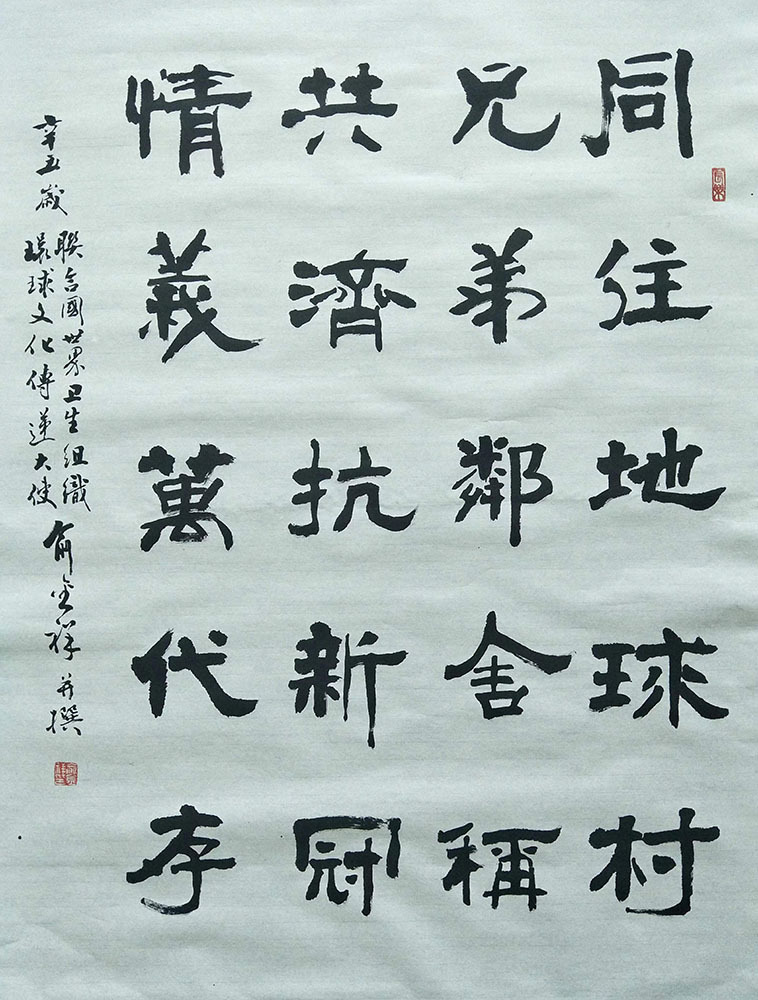 同住地球村
兄弟鄰舍稱
共濟抗新冠
情義萬代存
辛丑歲
聯合國世界卫生组織
環球文化傳递大使
俞金祥并撰